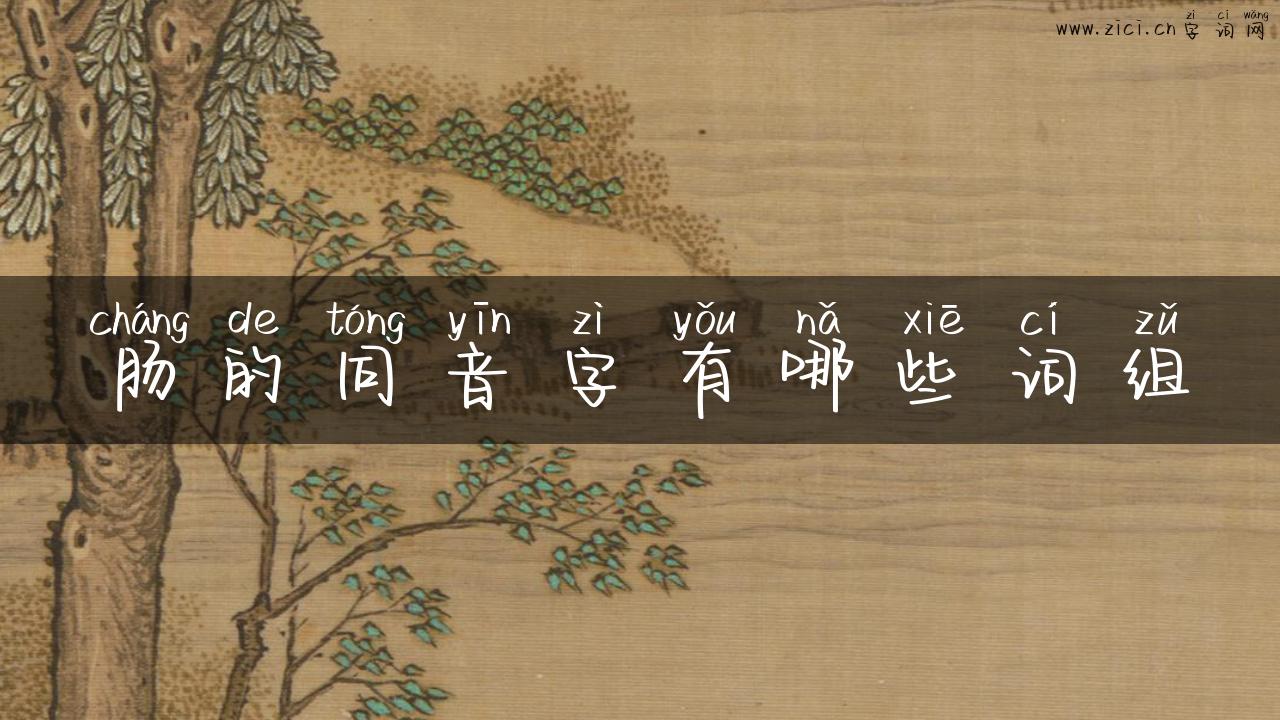 zì cí wǎng
www.zici.cn字词网
cháng de tóng yīn zì yǒu nǎ xiē cí zǔ
肠的同音字有哪些词组